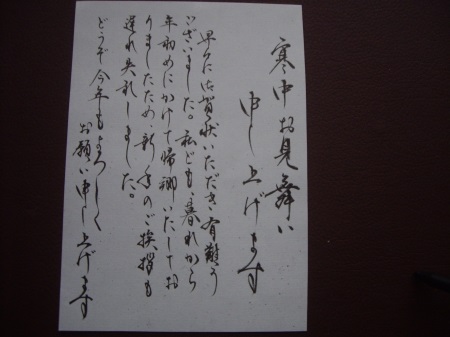 寒中お見舞い
申し上げます
早々に御賀状いただき有難う
ございました。私ども、暮れから
年初めにかけて帰郷いたしてお
りましたため、新年のご挨拶も
遅れ失礼しました。
どうぞ今年もよろしく
お願い申し上げます